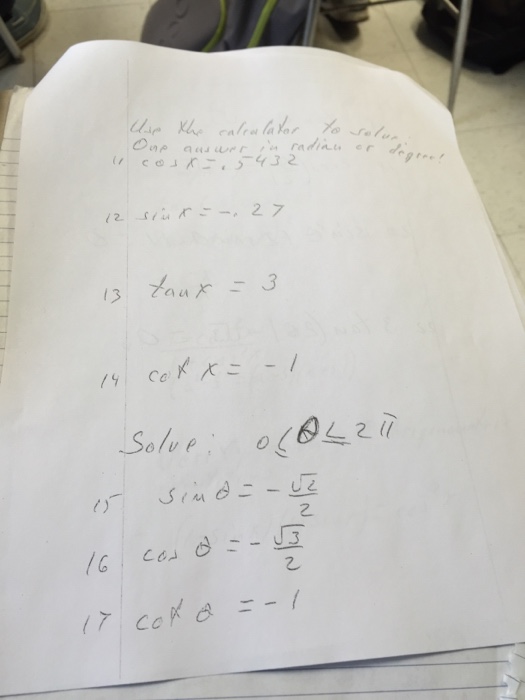 Use the calculator to solve
One answer in radians or degree!
11 cos x = .5432
12 sin x = -.27
13 tan x = 3
14 cot x = -1
Solve: 0 ≤ θ ≤ 2π
15 sin θ = - √2/2
16 cos θ = - √3/2
17 cot θ = -1